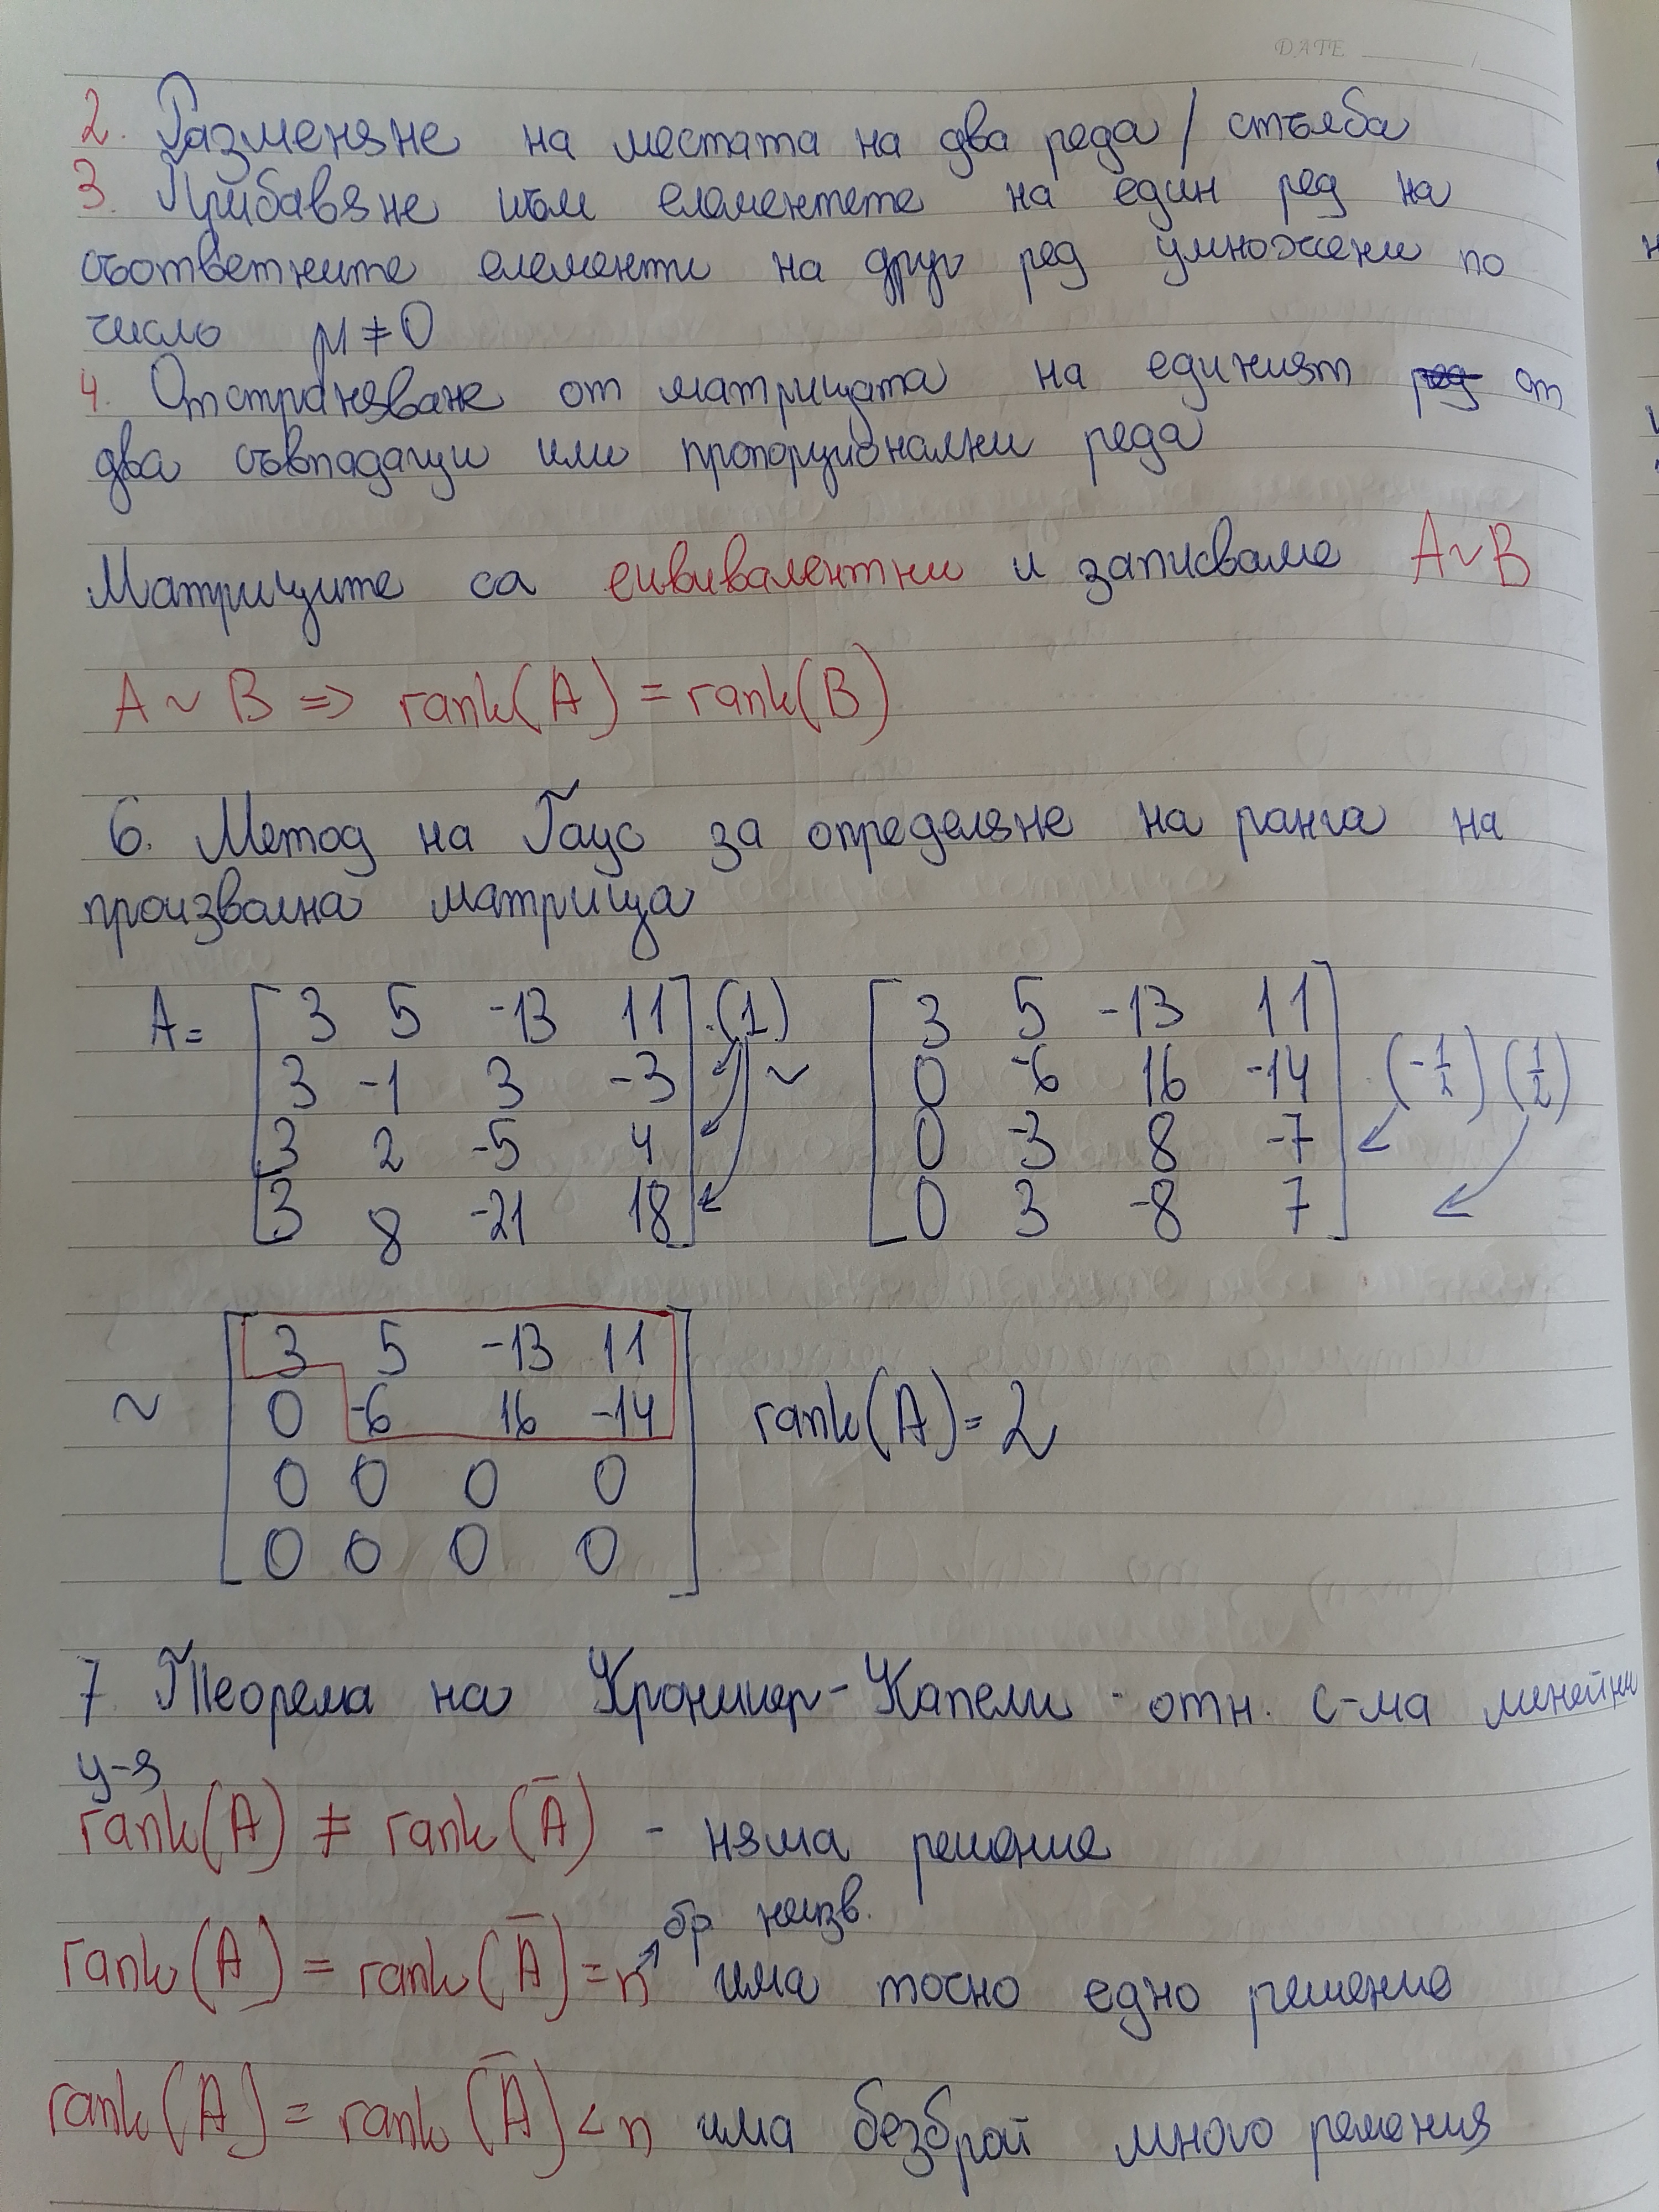 DATE
2. Разменяне на местата на два реда / стълба
3. Прибавяне към елементете на един ред на
съответните елементи на друг ред умножени по
число μ ≠ 0
4. Отстраняване от матрицата на единият ред от
два съвпадащи или пропорционални реда
Матриците са еквивалентни и записваме A ~ B
A ~ B => rank(A) = rank(B)
6. Метод на Гаус за определяне на ранга на
произволна матрица
A = [ 3 5 -13 11 ] .(1) [ 3 5 -13 11 ]
3 -1 3 -3 ~ 0 -6 16 -14 .(-1/2) (1/2)
3 2 -5 4 0 -3 8 -7
3 8 -21 18 0 3 -8 7
3 5 -13 11
~ 0 -6 16 -14 rank(A) = 2
0 0 0 0
0 0 0 0
7. Теорема на Кронекер - Капели - отн. с-ма линейни
у-я
rank(A) ≠ rank(Ā) - няма решение
бр неизв.
rank(A) = rank(Ā) = n има точно едно решение
rank(A) = rank(Ā) < n има безброй много решения